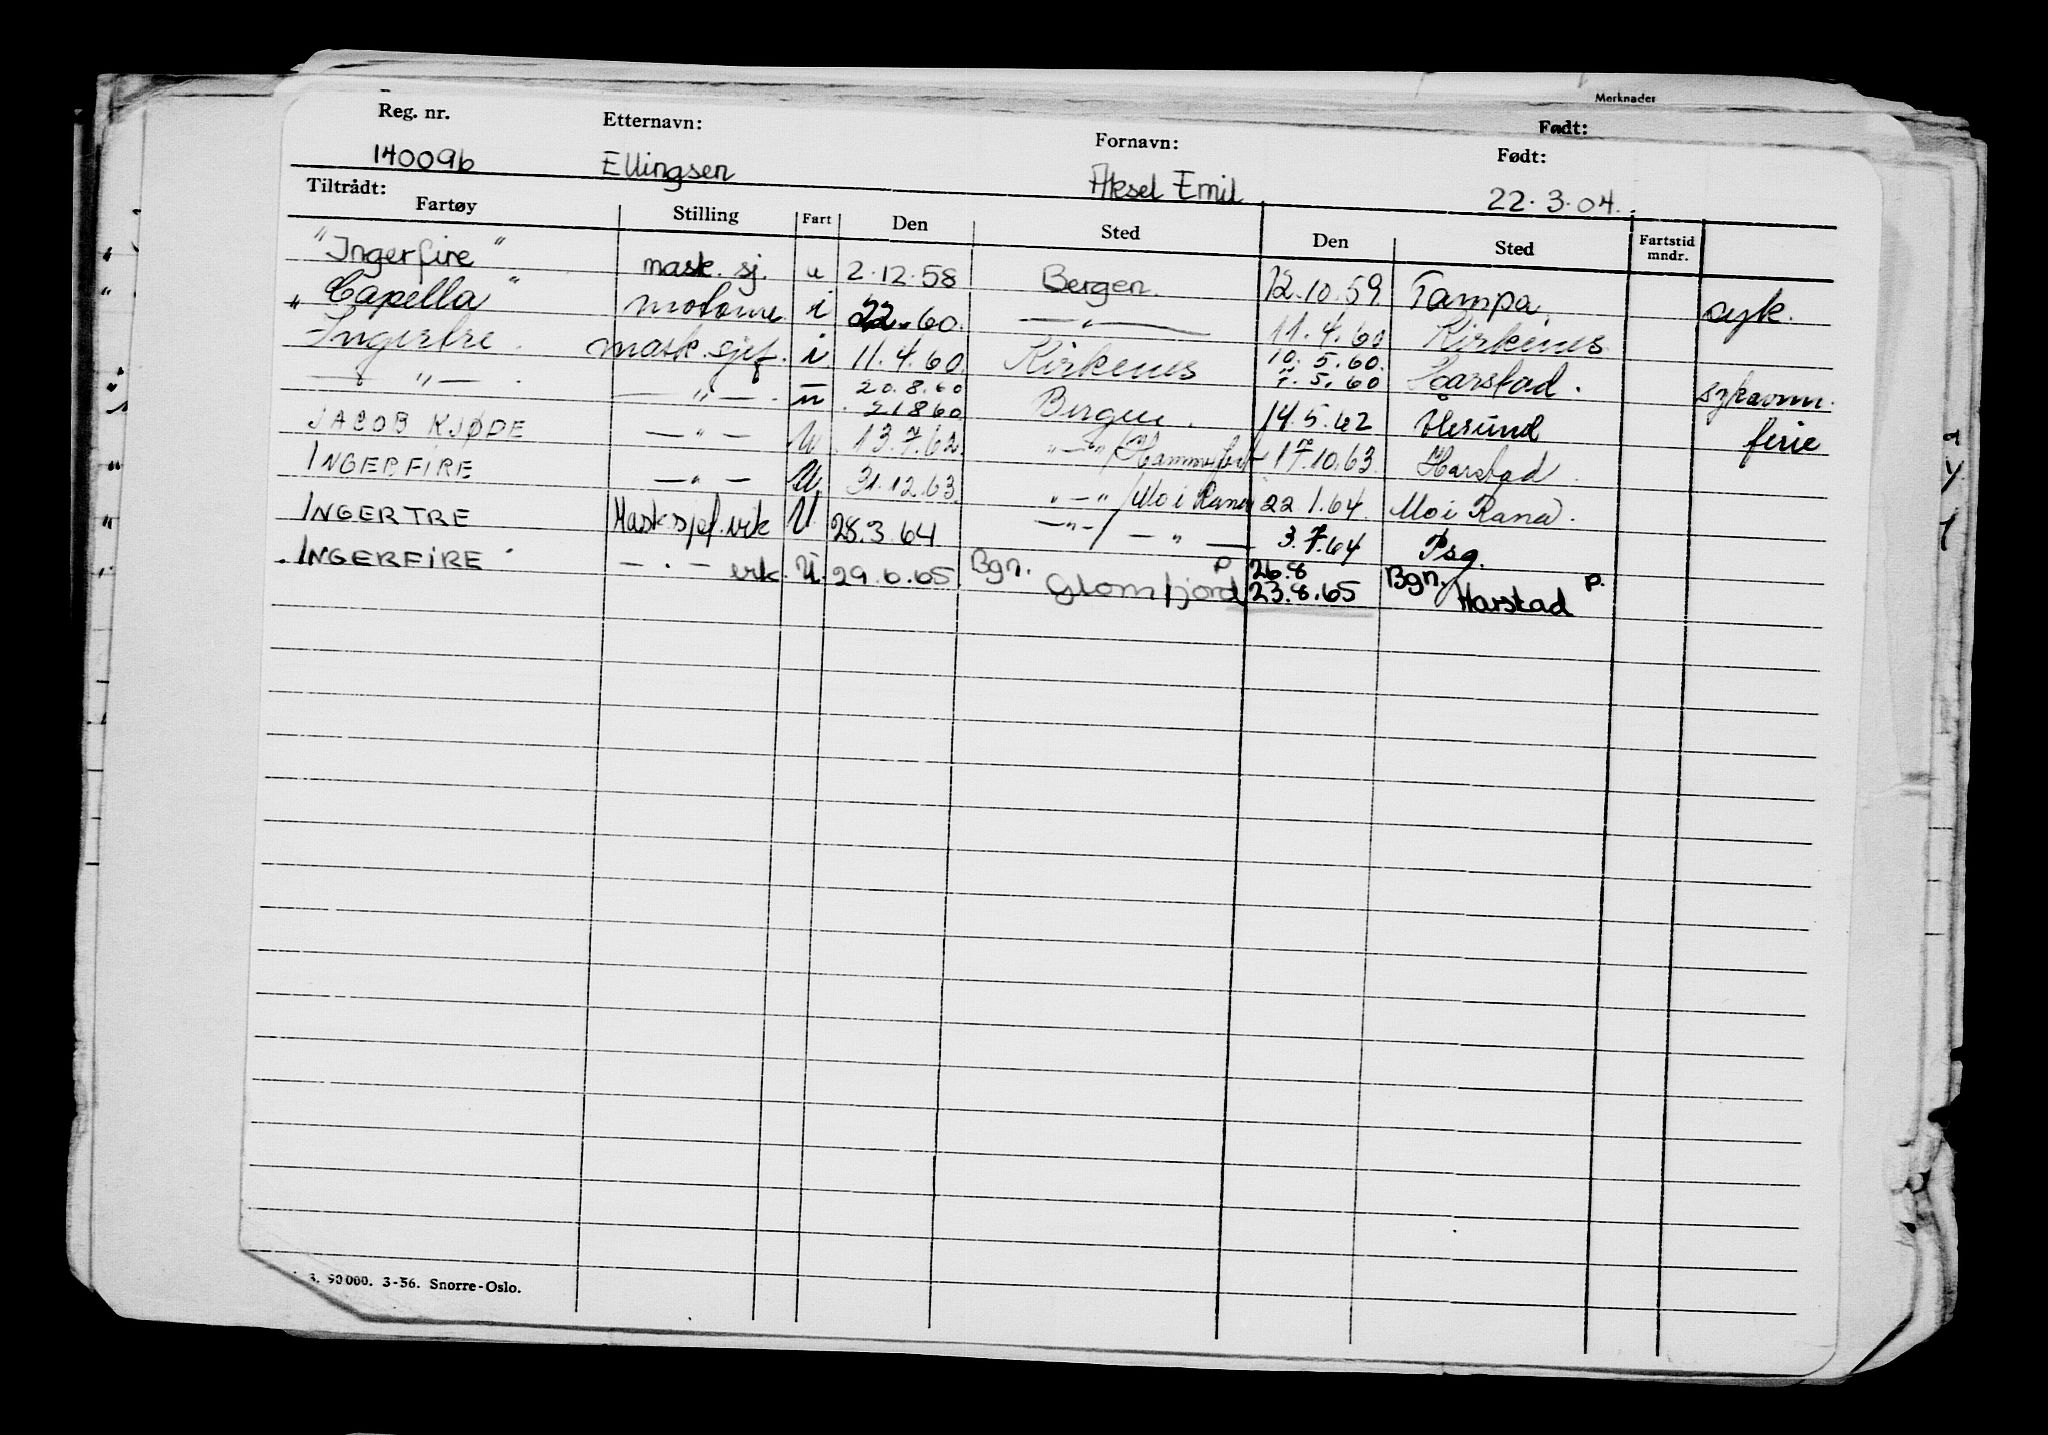 Merknader
Født:
Reg. nr. Etternavn: Fornavn: Født:
140096 Ellingsen Aksel Emil 22.3.04.
Tiltrådt:
Fartøy Stilling Fart Den Sted Den Sted Fartstid mndr.
"Ingerfire" mask. sj. u 2.12.58 Bergen. 12.10.59 Tampa. syk.
"Capella" i 60. — " — 11.4.60 Kirkenes
Ingertre. mask. sjef. i. 11.4.60. Kirkenes 10.5.60. 7.5.60 Harstad.
— " — . — " — . 20.8.60 21860 Bergen. 14.5.62 Ålesund ferie
JACOB KJØDE — " — U 13.7.62. " — " / Hammerfest 17.10.63. Harstad.
INGERFIRE — " — U 31.12.63. " — " / Mo i Rana 22.1.64. Mo i Rana.
INGERTRE Mask.sjef. vik U 28.3.64 — " — / — " — 3.7.64 Psg.
INGERFIRE — . — U. 29.6.65. Bgn. P Glomfjord 26.8 23.8.65 Bgn. P. Harstad
3. 90000. 3-56. Snorre-Oslo.